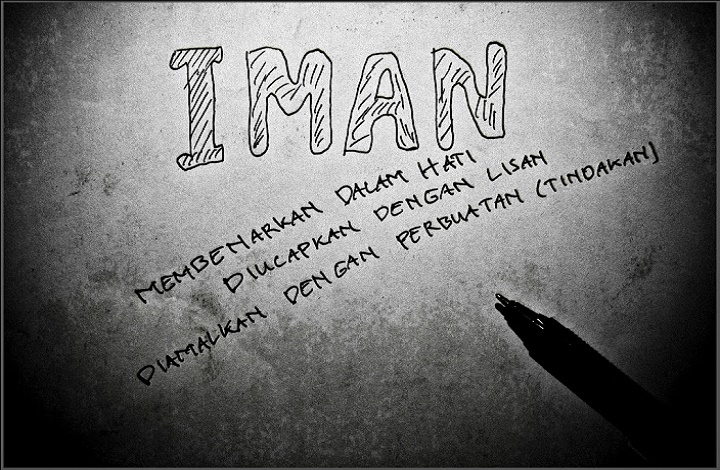 IMAN
MEMBENARKAN DALAM HATI
DIUCAPKAN DENGAN LISAN
DIAMALKAN DENGAN PERBUATAN (TINDAKAN)